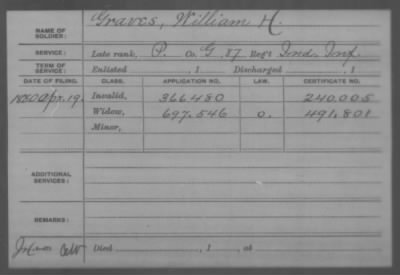 NAME OF SOLDIER: Graves, William H.
SERVICE: Late rank, P. Co. G. 87 Reg't Ind. Inf.
TERM OF SERVICE: Enlisted , 1 Discharged , 1
DATE OF FILING. CLASS. APPLICATION NO. LAW. CERTIFICATE NO.
1880 Apr. 19. Invalid, 366480 240.005
Widow, 697.546 O. 491.801
Minor,
ADDITIONAL SERVICES:
REMARKS:
Died , 1 , at